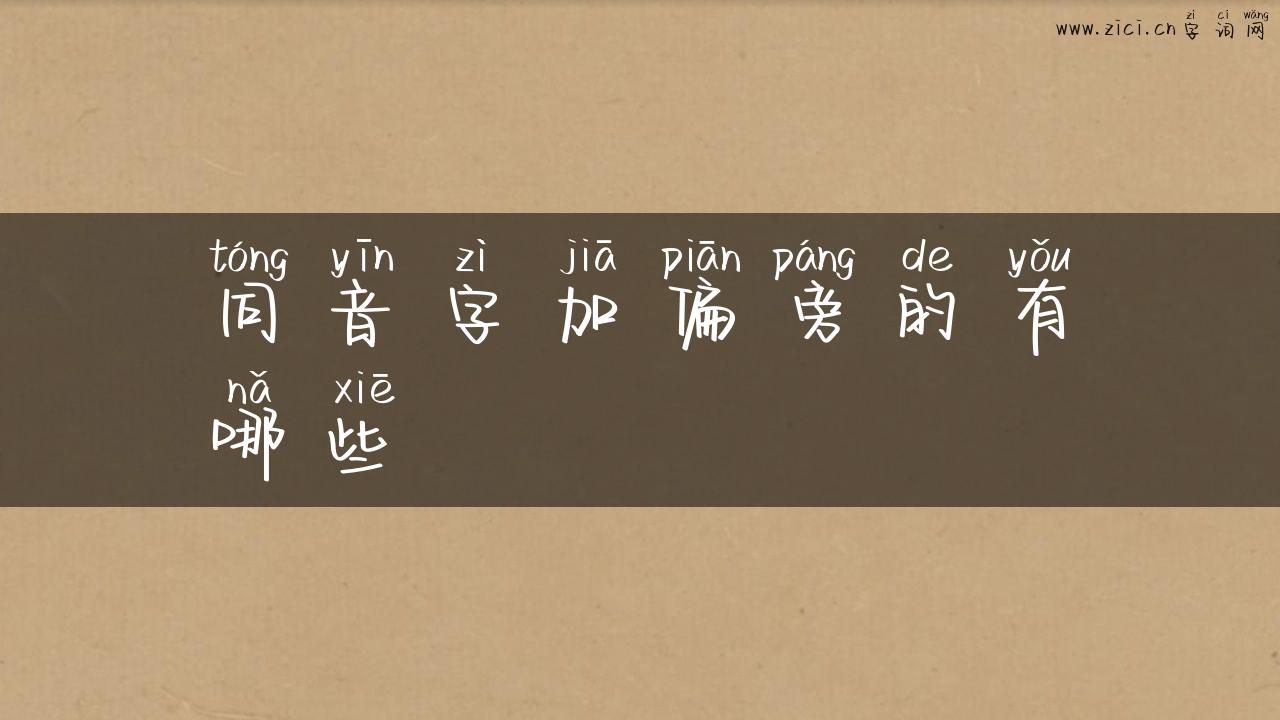 zì cí wǎng
www.zici.cn字词网
tóng yīn zì jiā piān páng de yǒu
同音字加偏旁的有
nǎ xiē
哪些